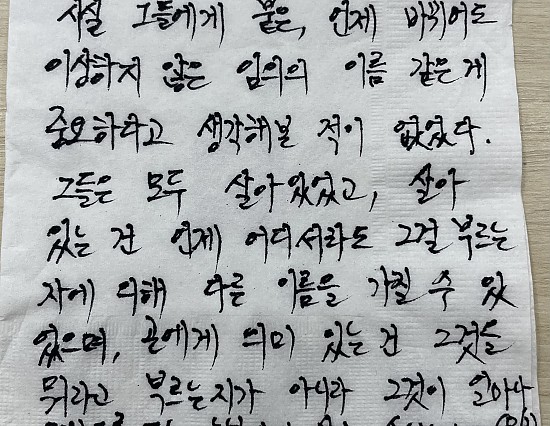 사실 그들에게 붙은, 언제 바뀌어도
이상하지 않은 임의의 이름 같은게
중요하다고 생각해본 적이 없었다.
그들은 모두 살아있었고, 살아
있는 건 언제 어디서라도 그걸 부르는
자에 의해 다른 이름을 가질 수 있
었으며, 곤에게 의미 있는 건 그것을
뭐라고 부르는지가 아니라 그것이 얼마나